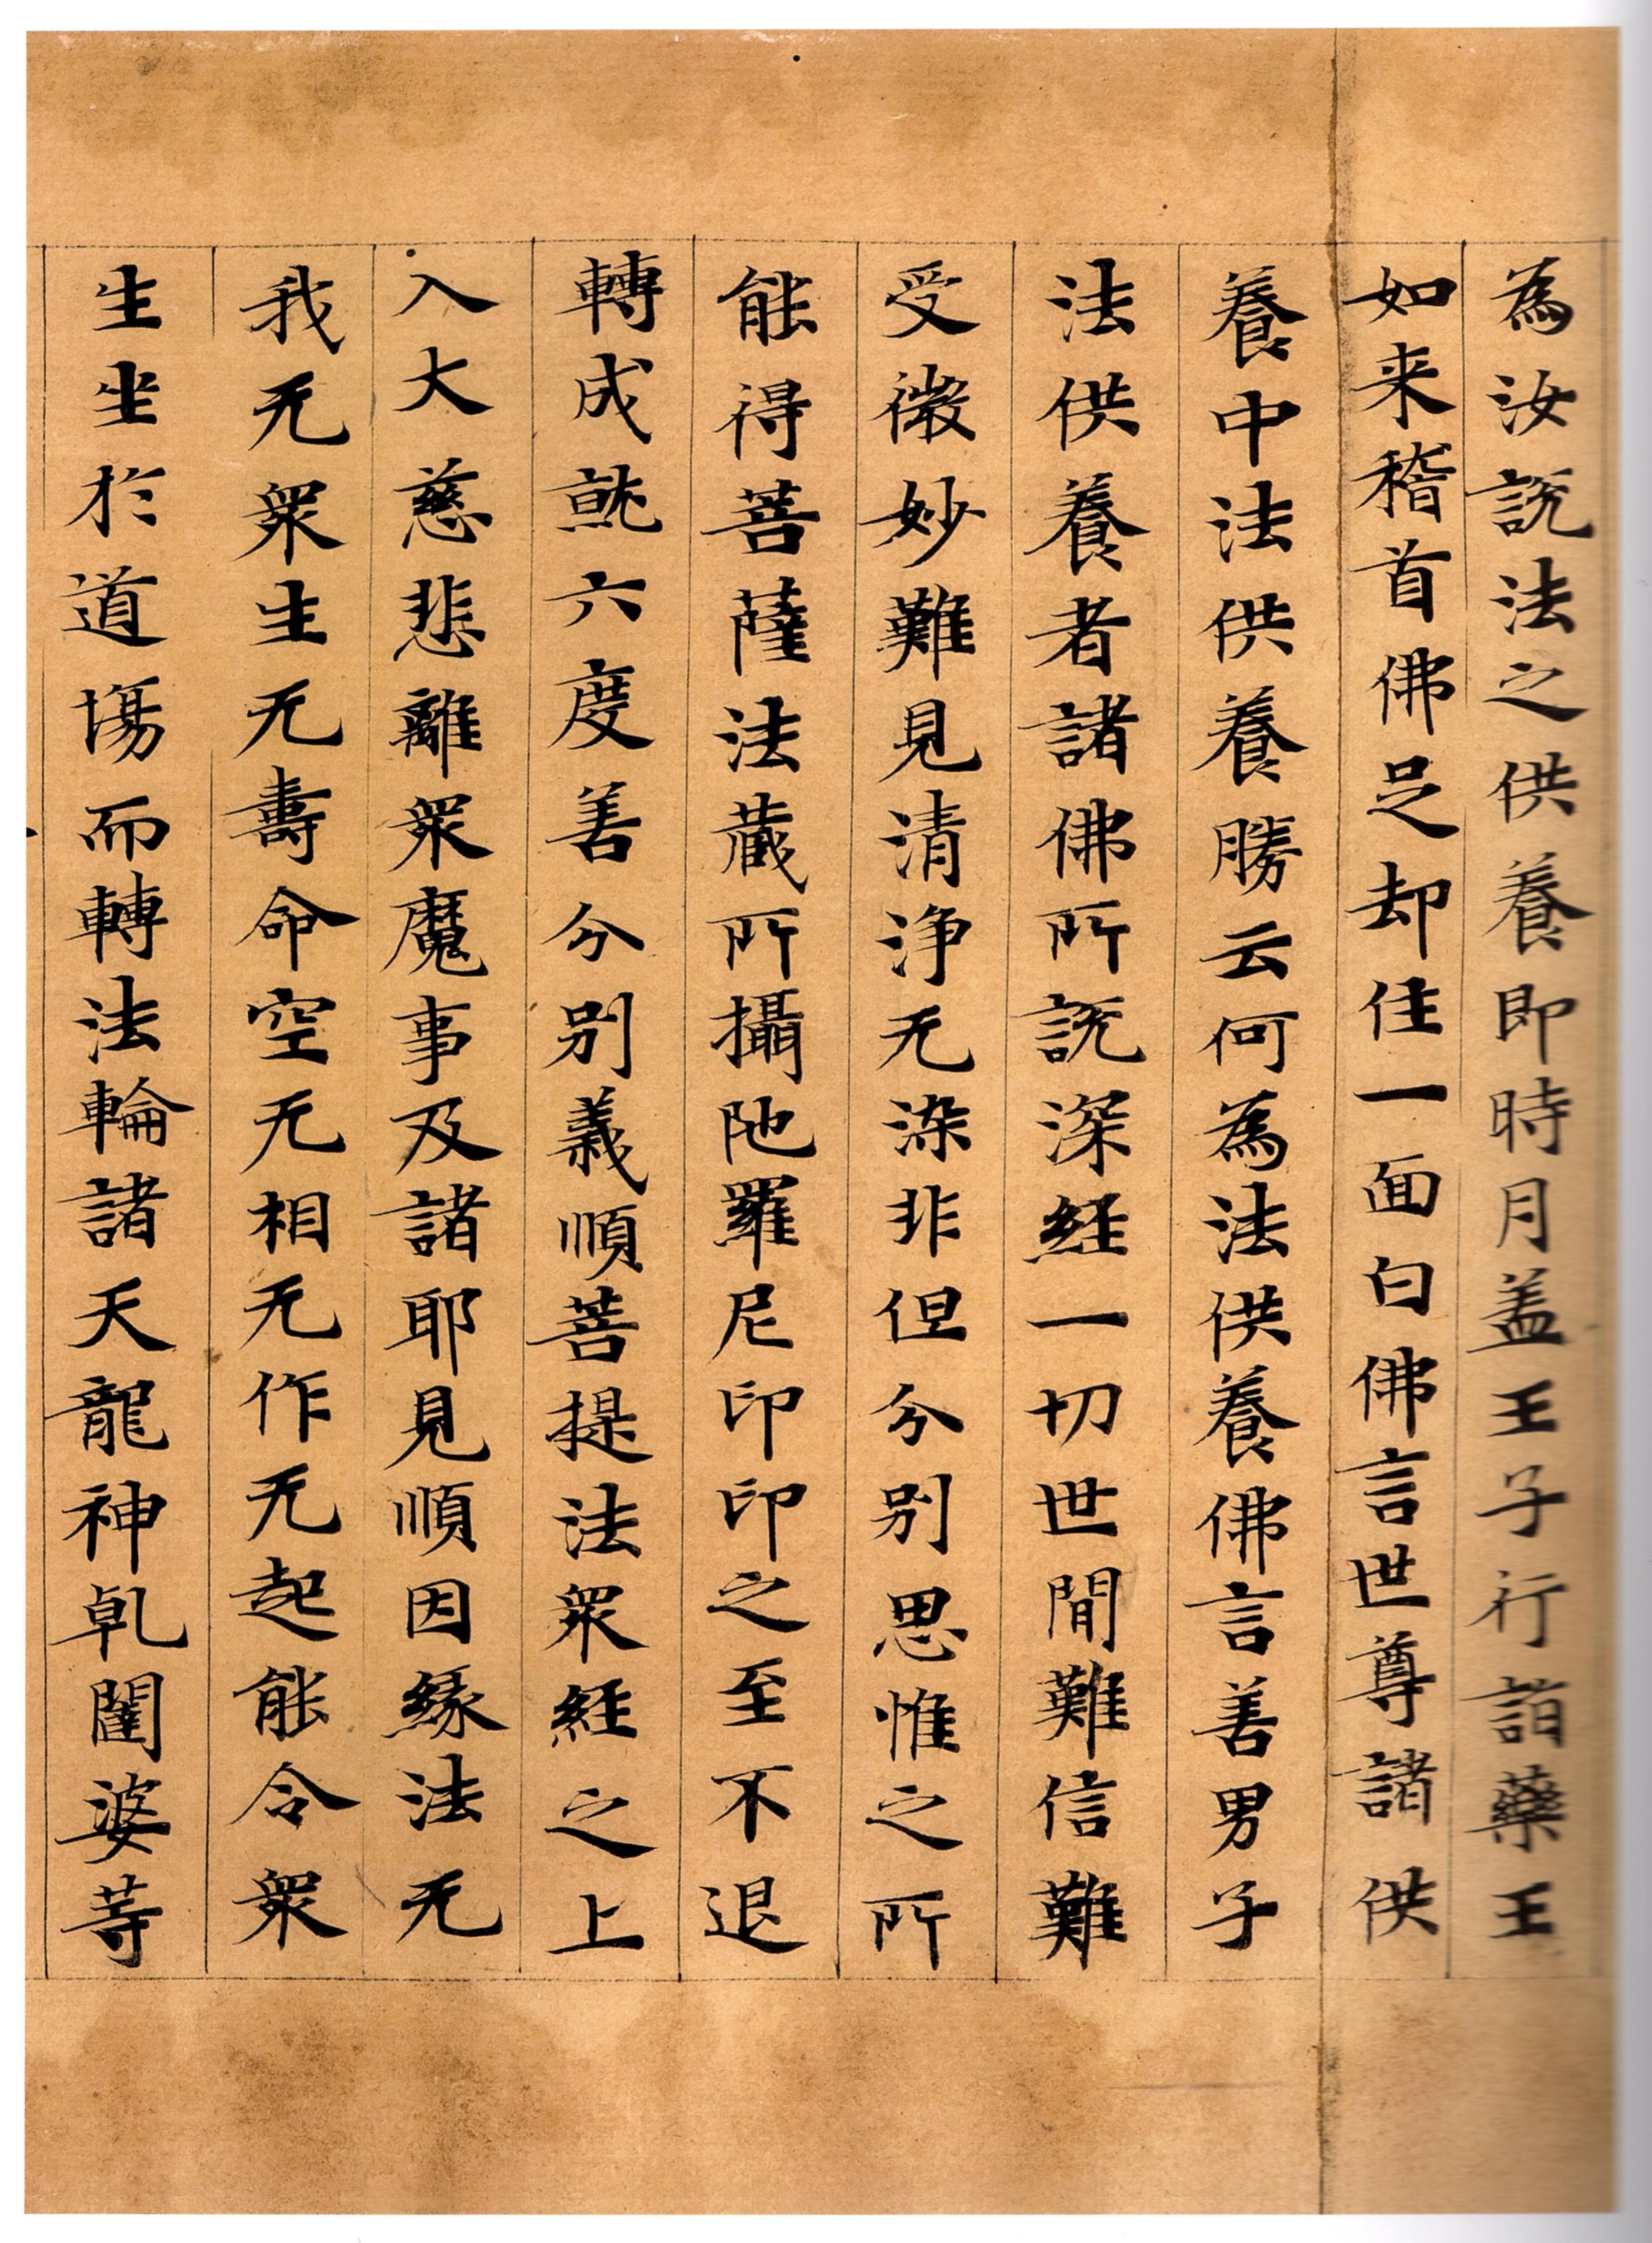 為汝說法之供養即時月盖王子行詣藥王
如来稽首佛足却住一面白佛言世尊諸供
養中法供養勝云何為法供養佛言善男子
法供養者諸佛所說深経一切世間難信難
受微妙難見清浄无染非但分别思惟之所
能得菩薩法蔵所攝陁羅尼印印之至不退
轉成就六度善分别義順菩提法衆経之上
入大慈悲離衆魔事及諸耶見順因緣法无
我无衆生无壽命空无相无作无起能令衆
生坐於道場而轉法輪諸天龍神乹闥婆䓁